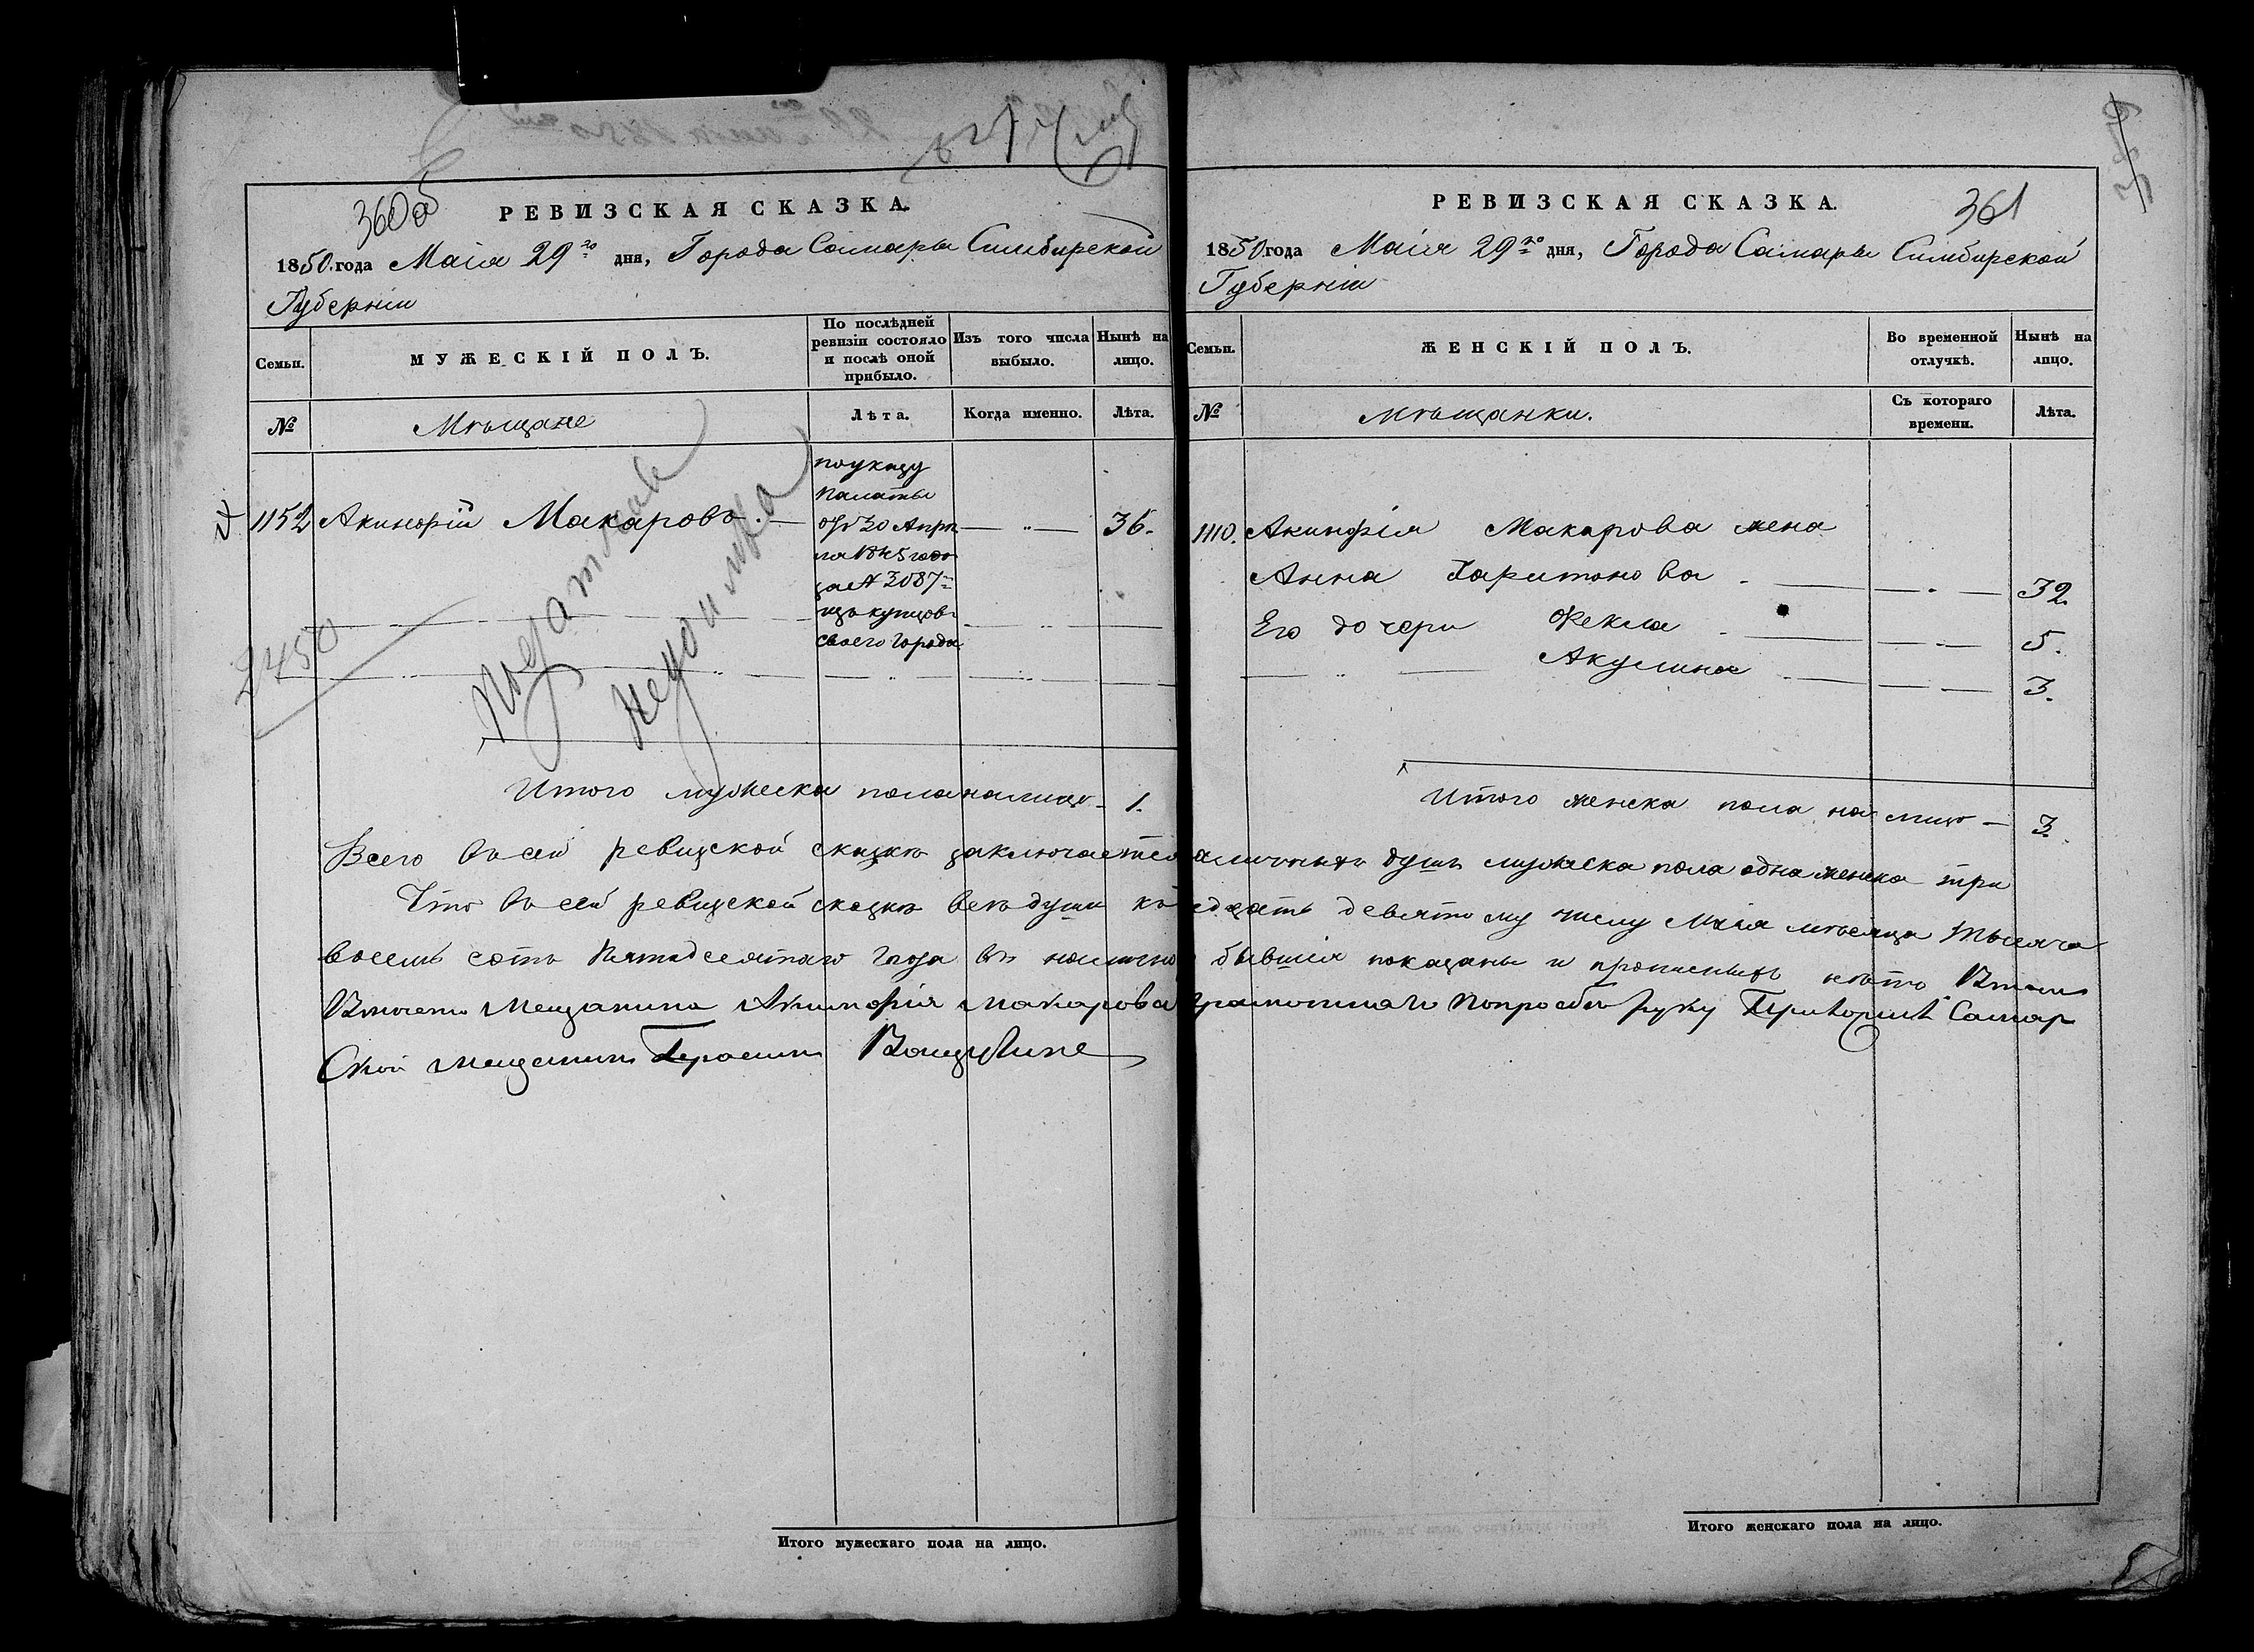 360 об
РЕВИЗСКАЯ СКАЗКА.
1850 года Маія 29го дня, Города Самары Симбирской
Губерніи
Семьи.
МУЖЕСКІЙ ПОЛЪ.
По послѣдней ревизіи состояло и послѣ оной прибыло.
Изъ того числа выбыло.
Нынѣ на лицо.
№
Мѣщане
Лѣта.
Когда именно.
Лѣта.
1152 Акинфій Макаровъ. — 36.
по указу
Палаты
отъ 30 Апрѣ
ля 1845 года
за № 3087м
изъ купцовъ
своего города
Податной
недоимка
2450
Итого мужеска пола на лицо — 1.
361
РЕВИЗСКАЯ СКАЗКА.
1850 года Маія 29го дня, Города Самары Симбирской
Губерніи
Семьи.
ЖЕНСКІЙ ПОЛЪ.
Во временной отлучкѣ.
Нынѣ на лицо.
№
Мѣщанки.
Съ котораго времени.
Лѣта.
1110. Акинфія Макарова жена
Анна Харитонова — 32.
Его дочери Фекла — 5.
Акулина — 3.
Итого женска пола на лицо — 3.
Всего въ сей ревизской сказкѣ заключается наличныхъ душъ мужеска пола одна женска три
Что въ сей ревизской сказкѣ всѣ души къ девятому числу Маія мѣсяца тысяча
восемь сотъ пятьдесятаго года въ налично бывшія показаны и прописныхъ нѣтъ Втом
Вмѣсто Мещанина Акинфія Макарова по просбѣ руку приложилъ Самар
Ской мещанинъ Герасим
Итого мужескаго пола на лицо.
Итого женскаго пола на лицо.